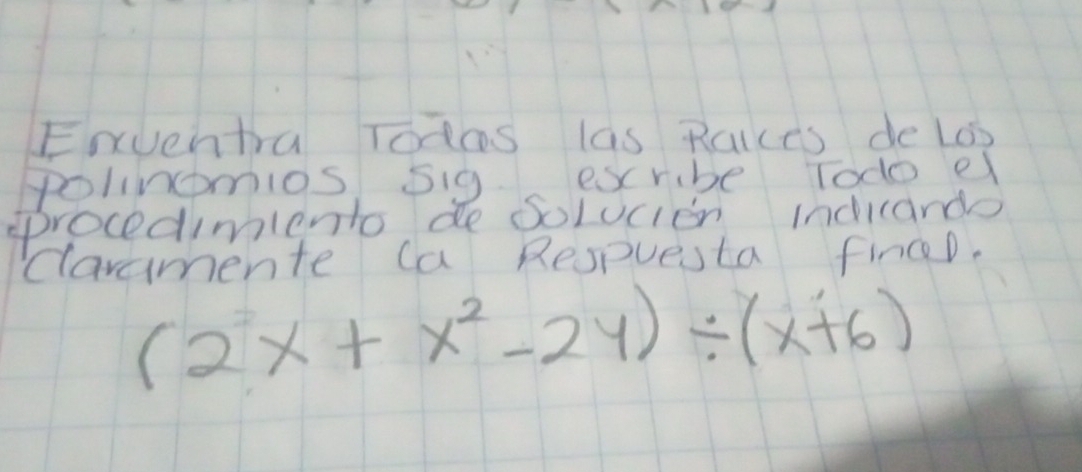 Encuentra Todas las Raices de Los
polinomios sig escribe Todo el
procedimiento de Solución indicando
claramente la Respuesta final.
(2x + x² - 24) ÷ (x+6)